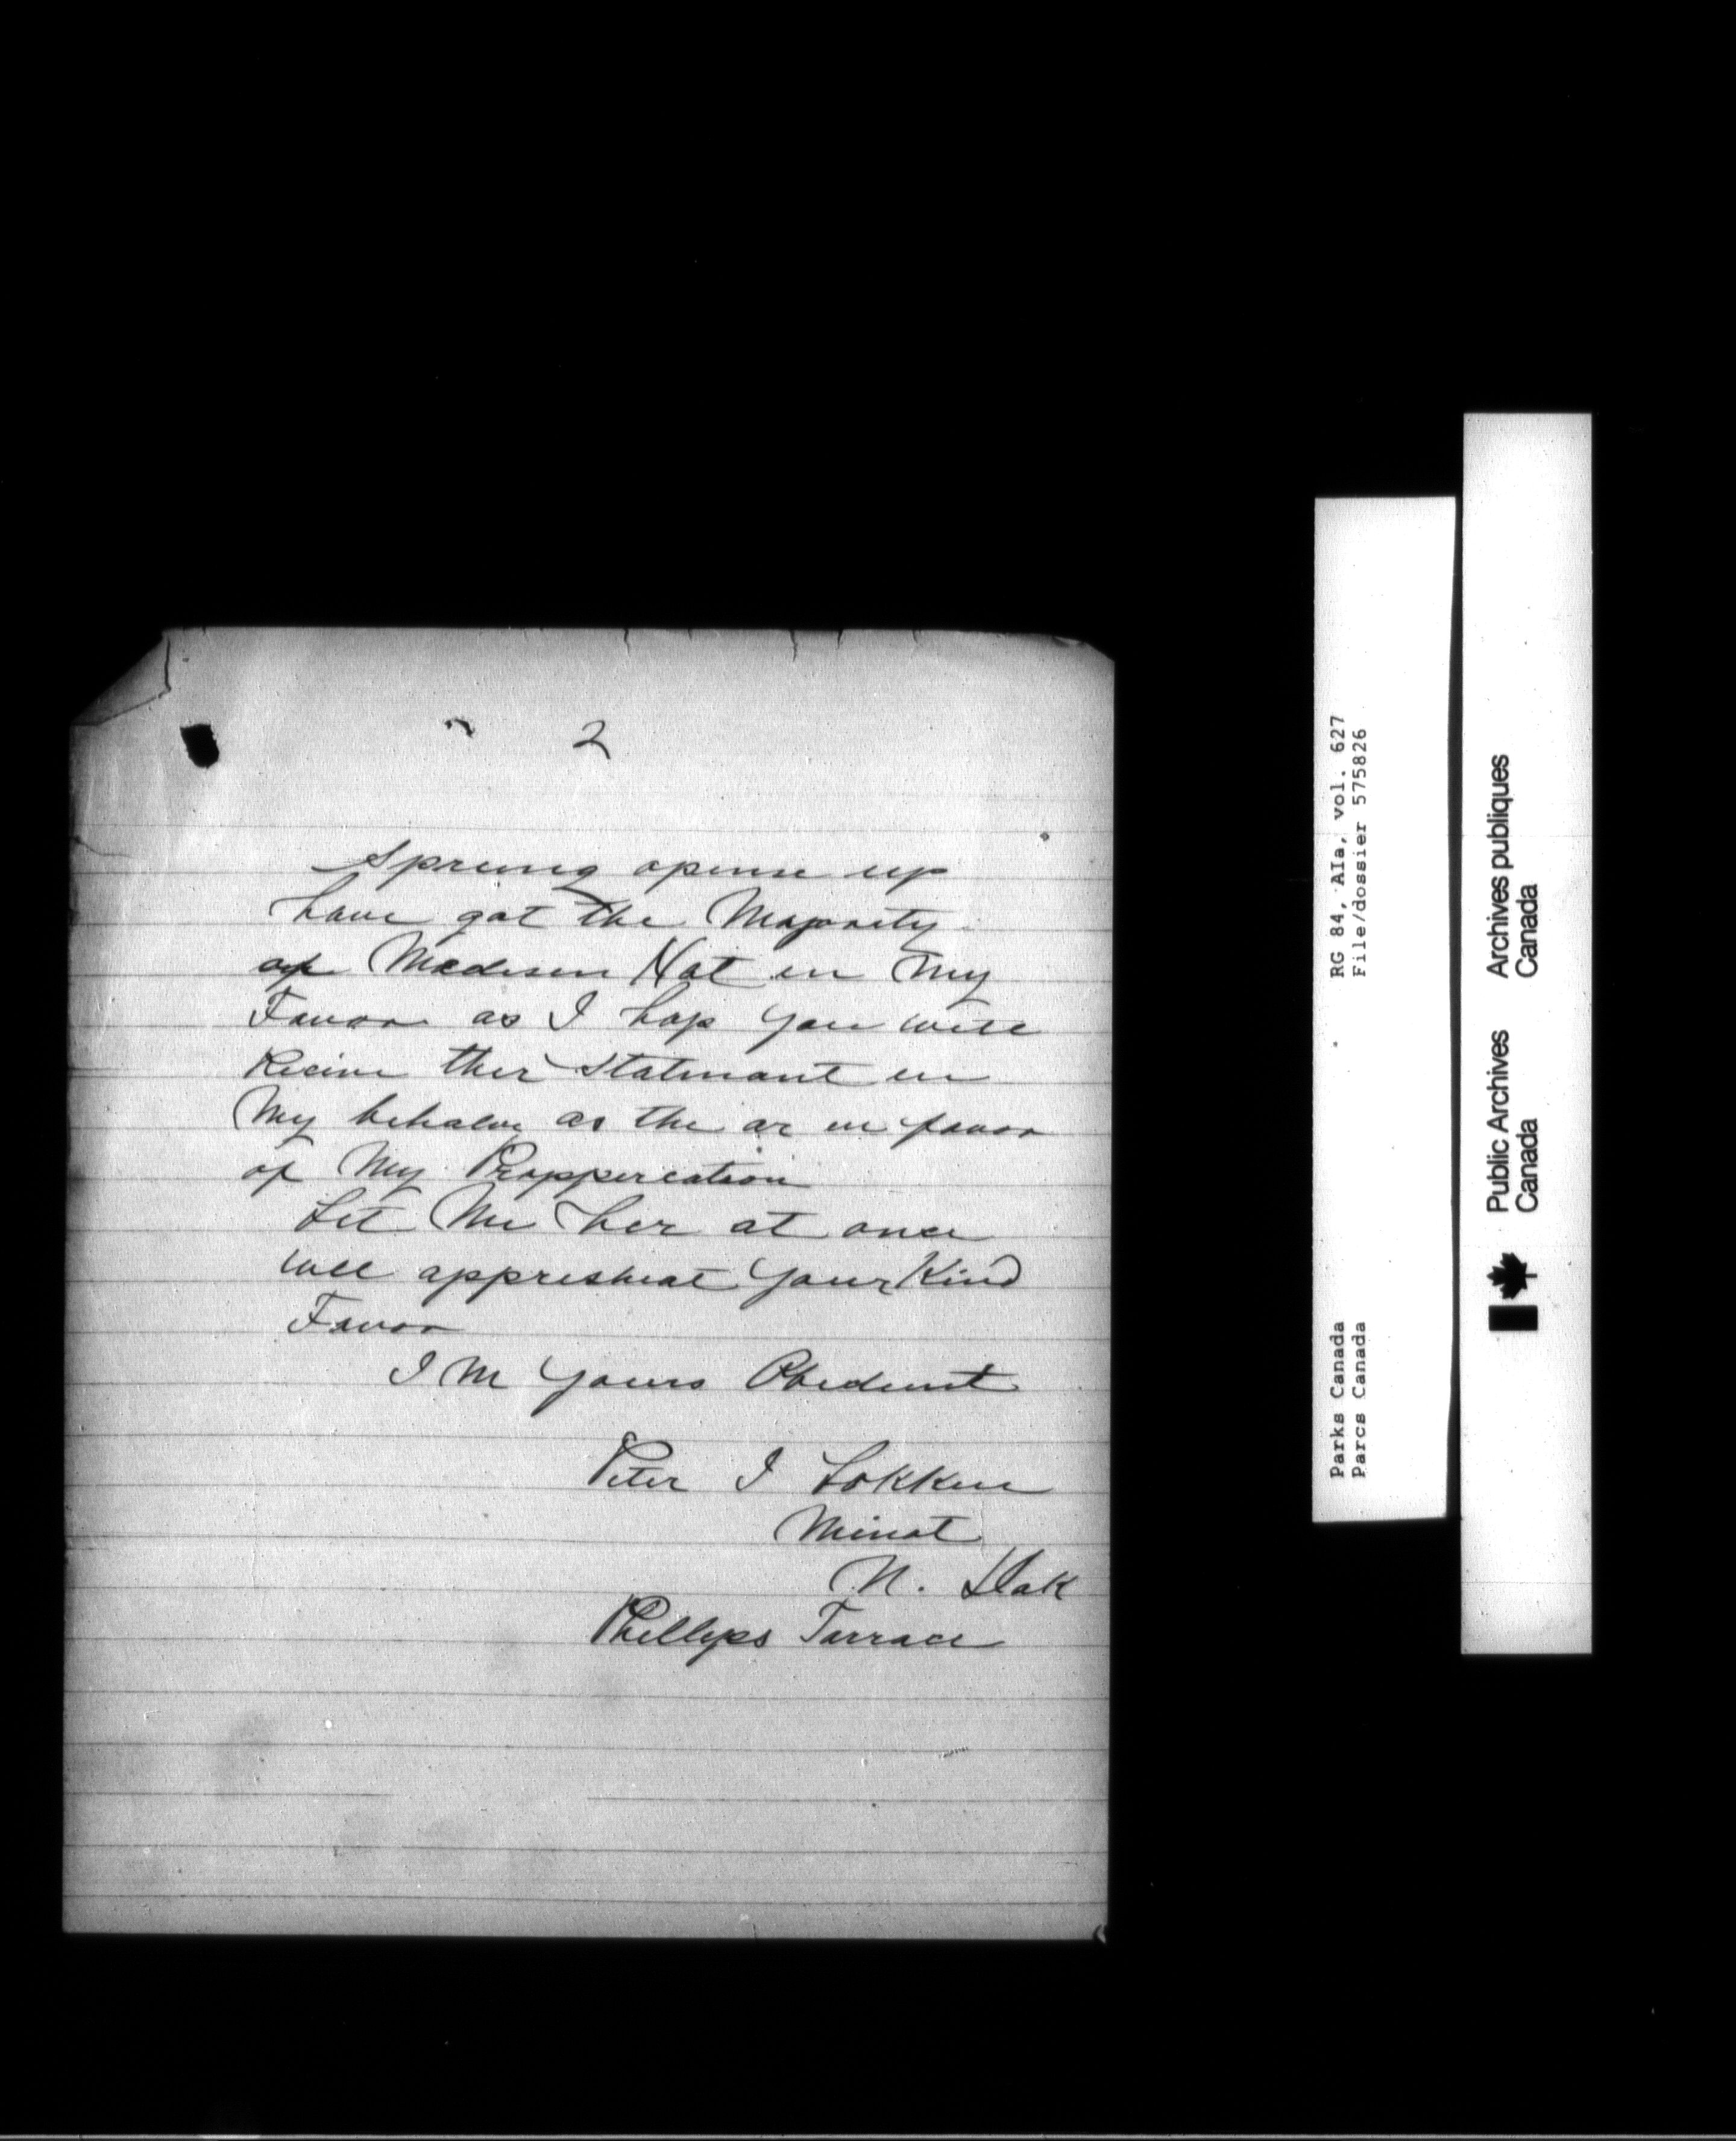 2
Spreing opense up
have got the Majoraty
of Madisen Hat in My
Favor as I hop you will
Recive ther statmant in
My behalve as the ar in favor
of My Proppercation
Let Me her at once
will appresheat your Kind
Favor
I M yours Obedient
Peter I Lokken
Minot
N. Dak
Phillips Tarrace
Parks Canada RG 84, AIa, vol. 627
Parcs Canada File/dossier 575826
Public Archives Archives publiques
Canada Canada